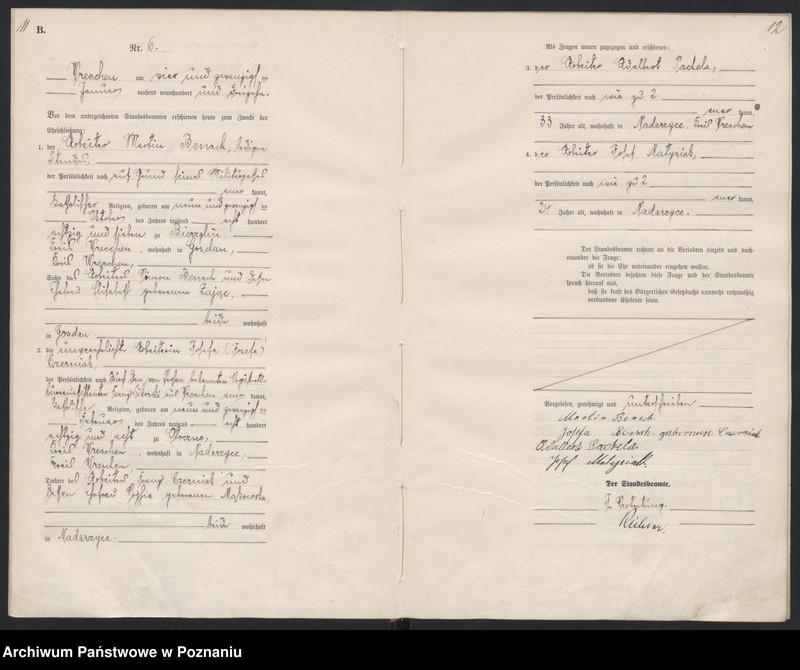 11
B.
Nr. 6.
Wreschen am vier und zwanzigsten
Januar tausend neunhundert und dreizehn.
Vor dem unterzeichneten Standesbeamten erschienen heute zum Zwecke der
Eheschließung:
1. der Arbeiter Martin Bensch, ledigen
Standes,
der Persönlichkeit nach auf Grund seines Militärpasses
kannt,
katholischer Religion, geboren am neun und zwanzigsten
Oktober des Jahres tausend acht hundert
achtzig und sieben zu
Kreis Wreschen, wohnhaft in Gosdau,
Kreis Wreschen,
Sohn des Arbeiters Simon Bensch und dessen
Ehefrau Elisabeth geborenen Zając,
beide wohnhaft
in Gosdau
2. die unverehelichte Arbeiterin Josefa (Józefa)
Czerniak,
der Persönlichkeit nach durch den von Person bekannten
aus Wreschen kannt,
katholischer Religion, geboren am neun und zwanzigsten
Februar des Jahres tausend acht hundert
achtzig und acht zu
Kreis Wreschen, wohnhaft in Nadarzyce,
Kreis Wreschen
Tochter des Arbeiters Franz Czerniak und
dessen Ehefrau Sophie geborenen
beide wohnhaft
in Nadarzyce.
12
Als Zeugen waren zugezogen und erschienen:
3. der Arbeiter Adalbert Pachela,
der Persönlichkeit nach wie zu 2
kannt,
33 Jahre alt, wohnhaft in Nadarzyce, Kreis Wreschen
4. der Arbeiter Josef Matysiak,
der Persönlichkeit nach wie zu 2
kannt,
24 Jahre alt, wohnhaft in Nadarzyce.
Der Standesbeamte richtete an die Verlobten einzeln und nach-
einander die Frage:
ob sie die Ehe miteinander eingehen wollen.
Die Verlobten bejahten diese Frage und der Standesbeamte
sprach hierauf aus,
daß sie kraft des Bürgerlichen Gesetzbuchs nunmehr rechtmäßig
verbundene Eheleute seien.
Vorgelesen, genehmigt und unterschrieben
Martin Bensch
Josefa Bensch geborene Czerniak
Adalbert Pachela
Josef Matysiak.
Der Standesbeamte.
In Vertretung.
Archiwum Państwowe w Poznaniu